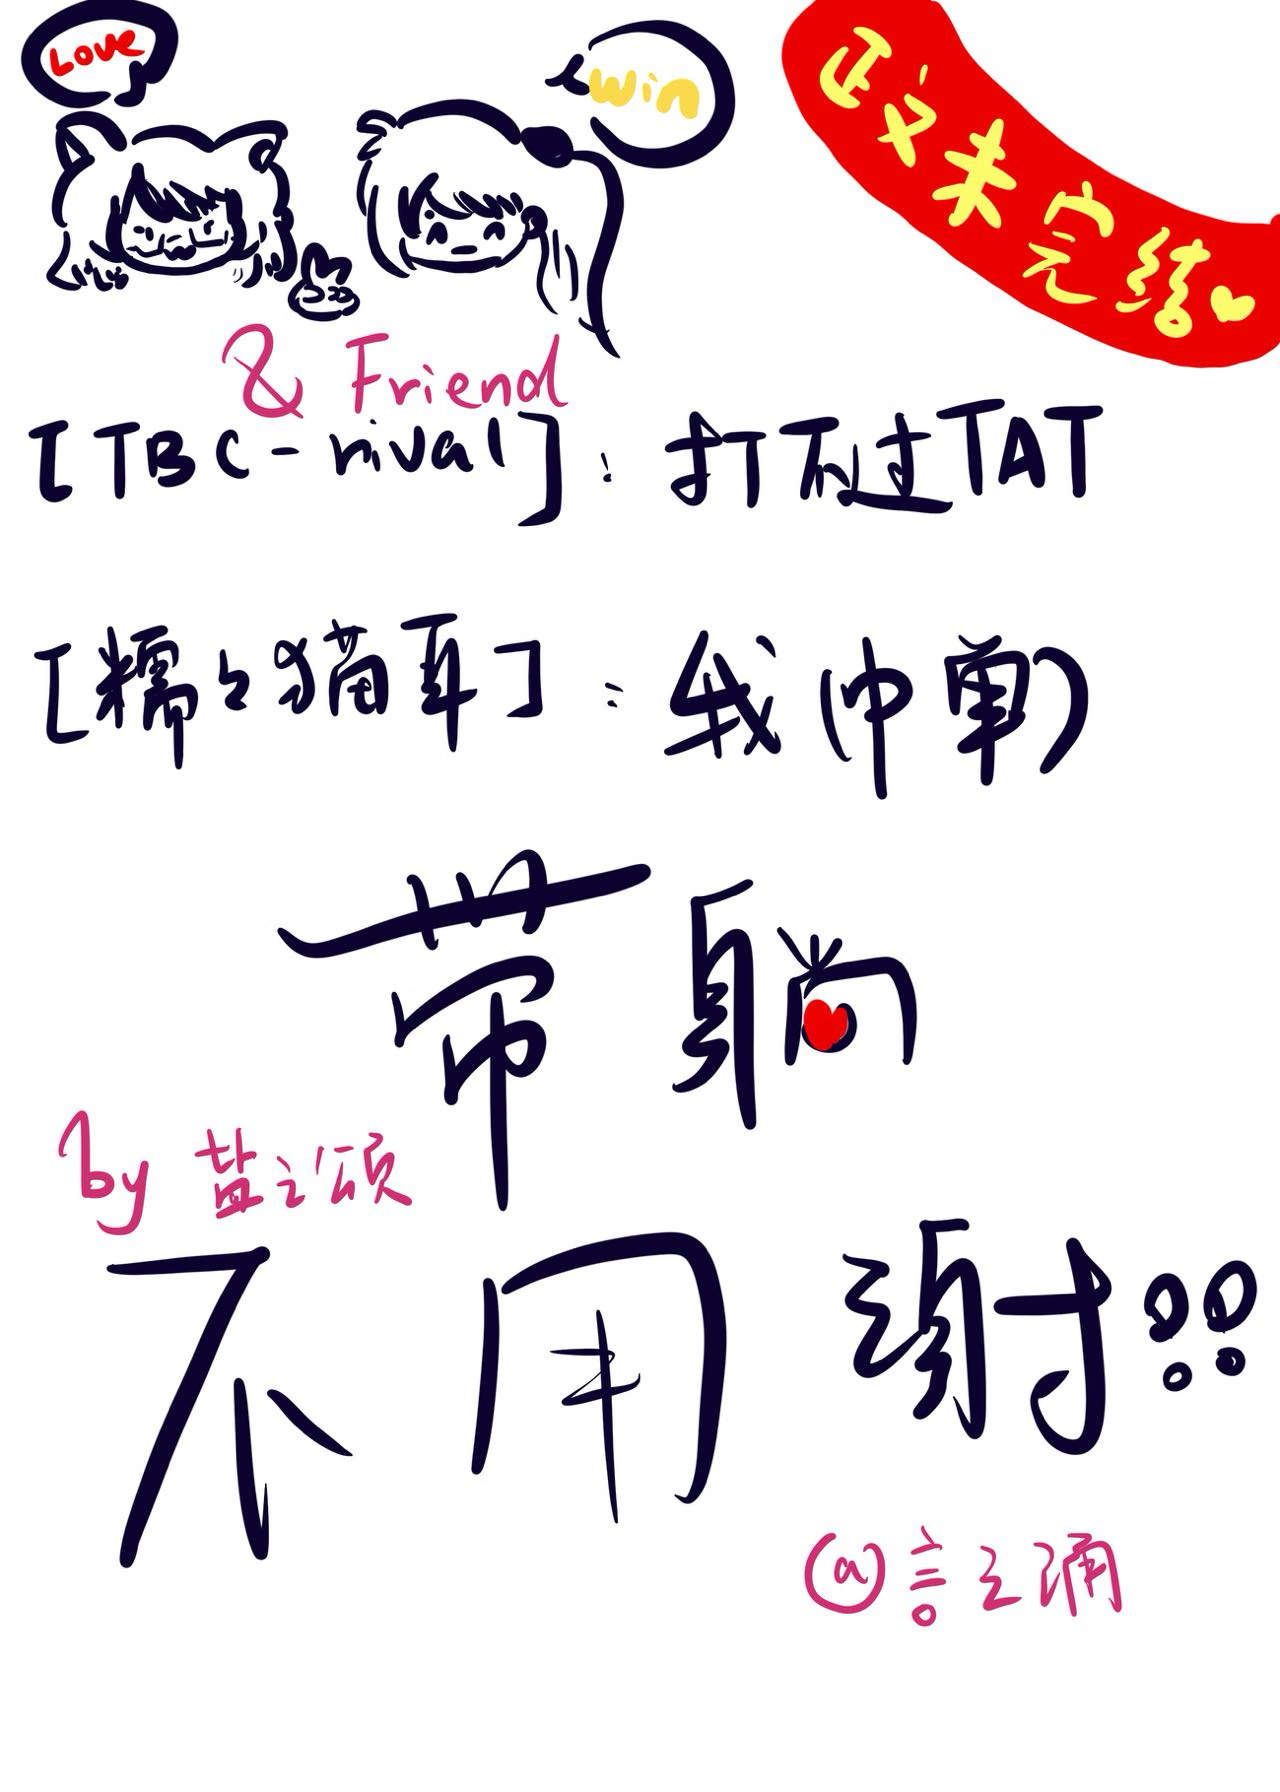 Love
win
政文未完结
& Friend
[TBC-rival]: 打不过TAT
[糯々猫耳]: 我(中单)
带躺
by 盐之颂
不用谢!!
@言之诵